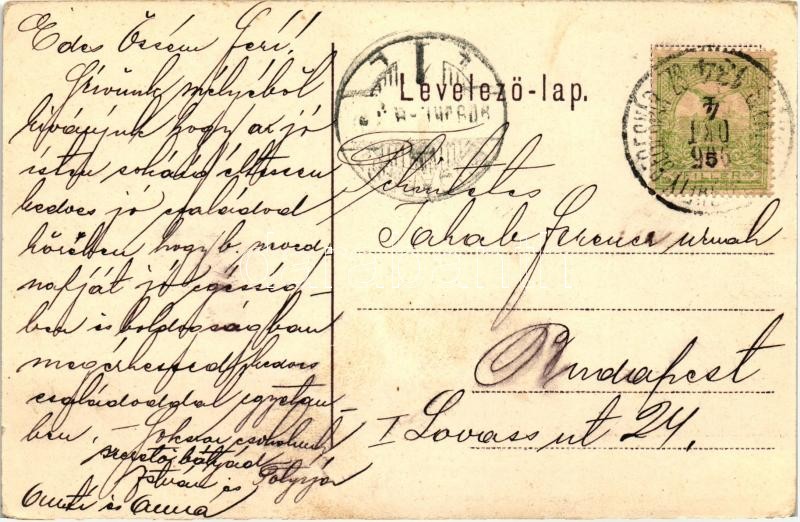 Édes Öcsém Feri!
Szívünk mélyéből
kívánjuk hogy az jó
isten sokáig éltessen
kedves jó családod
körében hogy b. neved
nafját jó egésség-
ben és boldogságban
megérhessed kedves
családoddal egyetem
ben. - Sokszor csókolunk
szerető bátyád
István és
Anna
Levelező-lap.
Jakab Ferencz urnak
Budapest
I Lovass ut 24.
FILLÉR